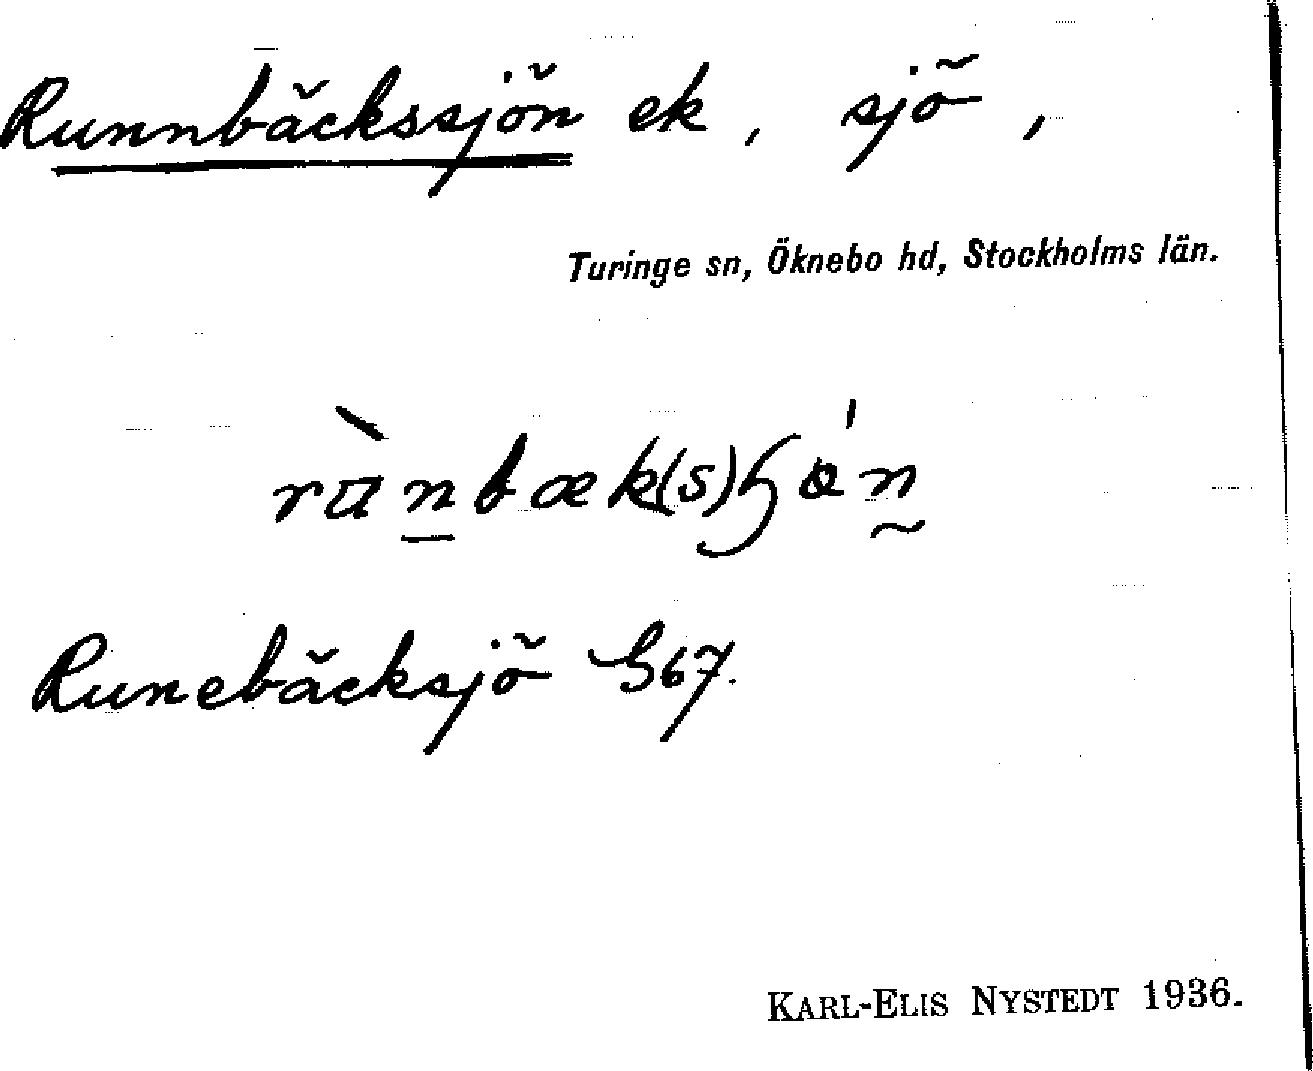 Runnbäckssjön ek, sjö,
Turinge sn, Öknebo hd, Stockholms län.
Runebäcksjö G67.
KARL-ELIS NYSTEDT 1936.